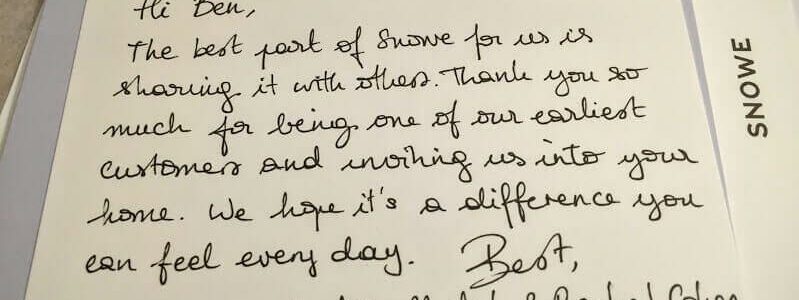 Hi Ben,
The best part of Snowe for us is
sharing it with others. Thank you so
much for being one of our earliest
customers and inviting us into your
home. We hope it's a difference you
can feel every day. Best,
SNOWE